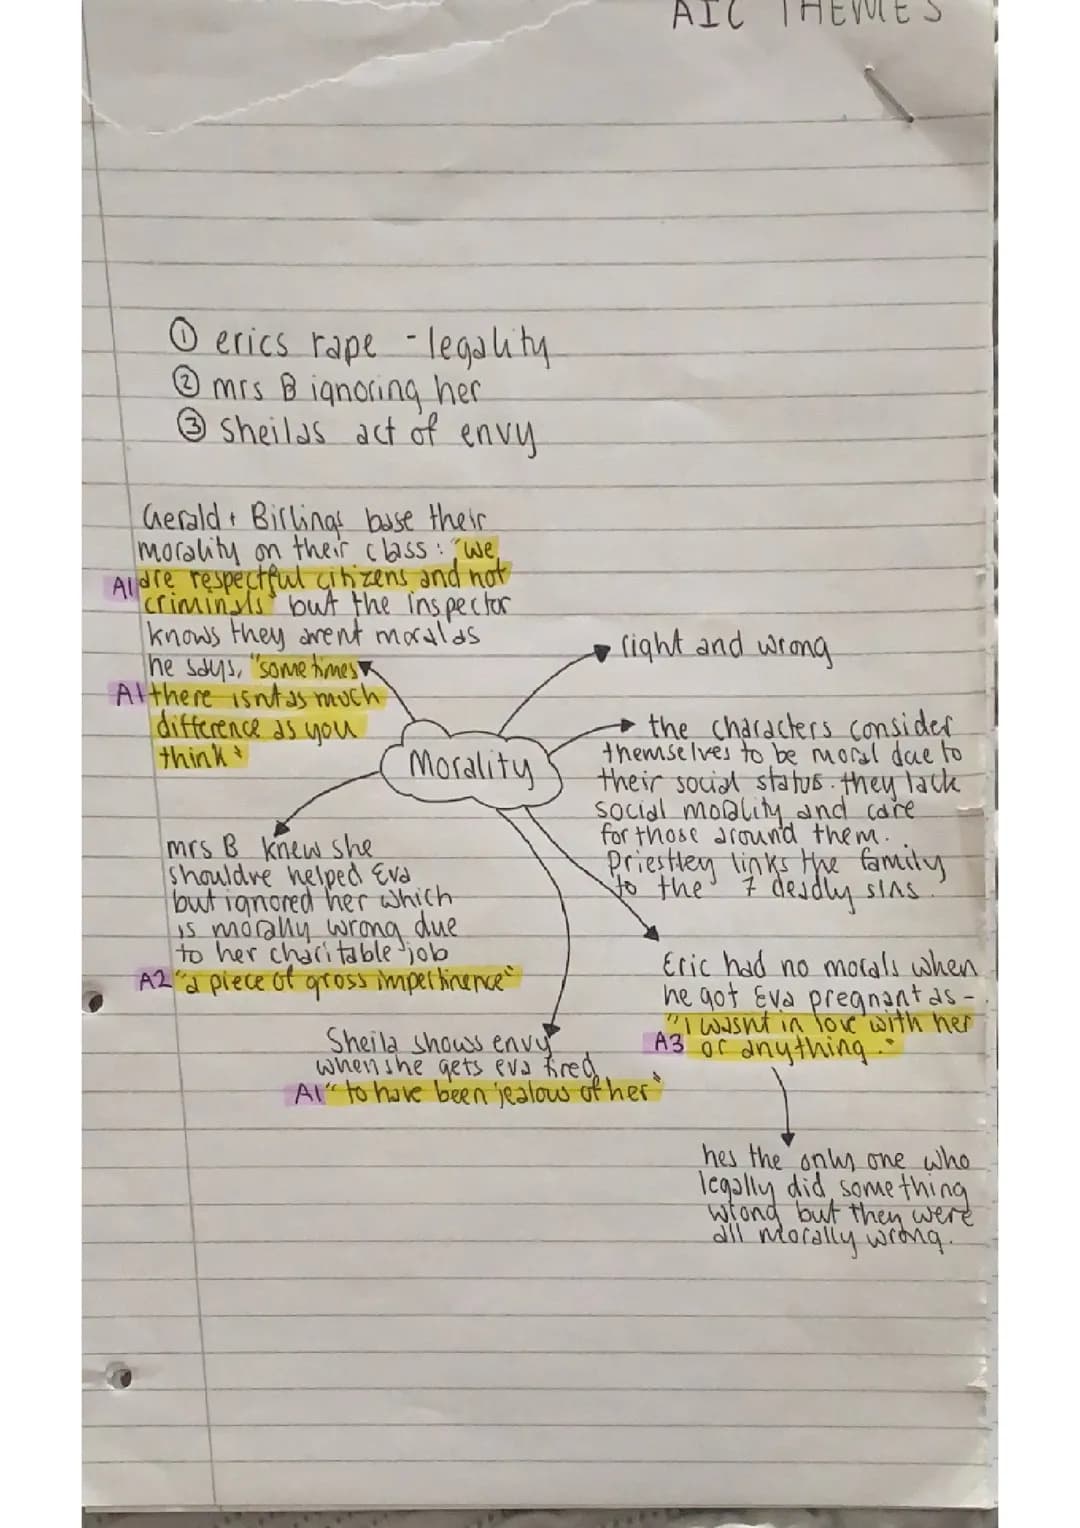 AIC THEMES
① erics rape - legality
② mrs B ignoring her
③ sheilas act of envy
Gerald + Birlings base their
morality on their class: "we
A1 are respectful citizens and not
criminals" but the inspector
knows they arent moral as
he says, "sometimes
A1 there isnt as much
difference as you
think"
right and wrong
the characters consider
themselves to be moral due to
their social status. they lack
social morality and care
for those around them.
Priestley links the family
to the 7 deadly sins.
Morality
mrs B knew she
shouldve helped Eva
but ignored her which
is morally wrong due
to her charitable job
A2 "a piece of gross impertinence"
Eric had no morals when
he got Eva pregnant as -
"I wasnt in love with her
A3 or anything."
Sheila shows envy
when she gets eva fired
A1 "to have been jealous of her"
hes the only one who
legally did something
wrong but they were
all morally wrong.